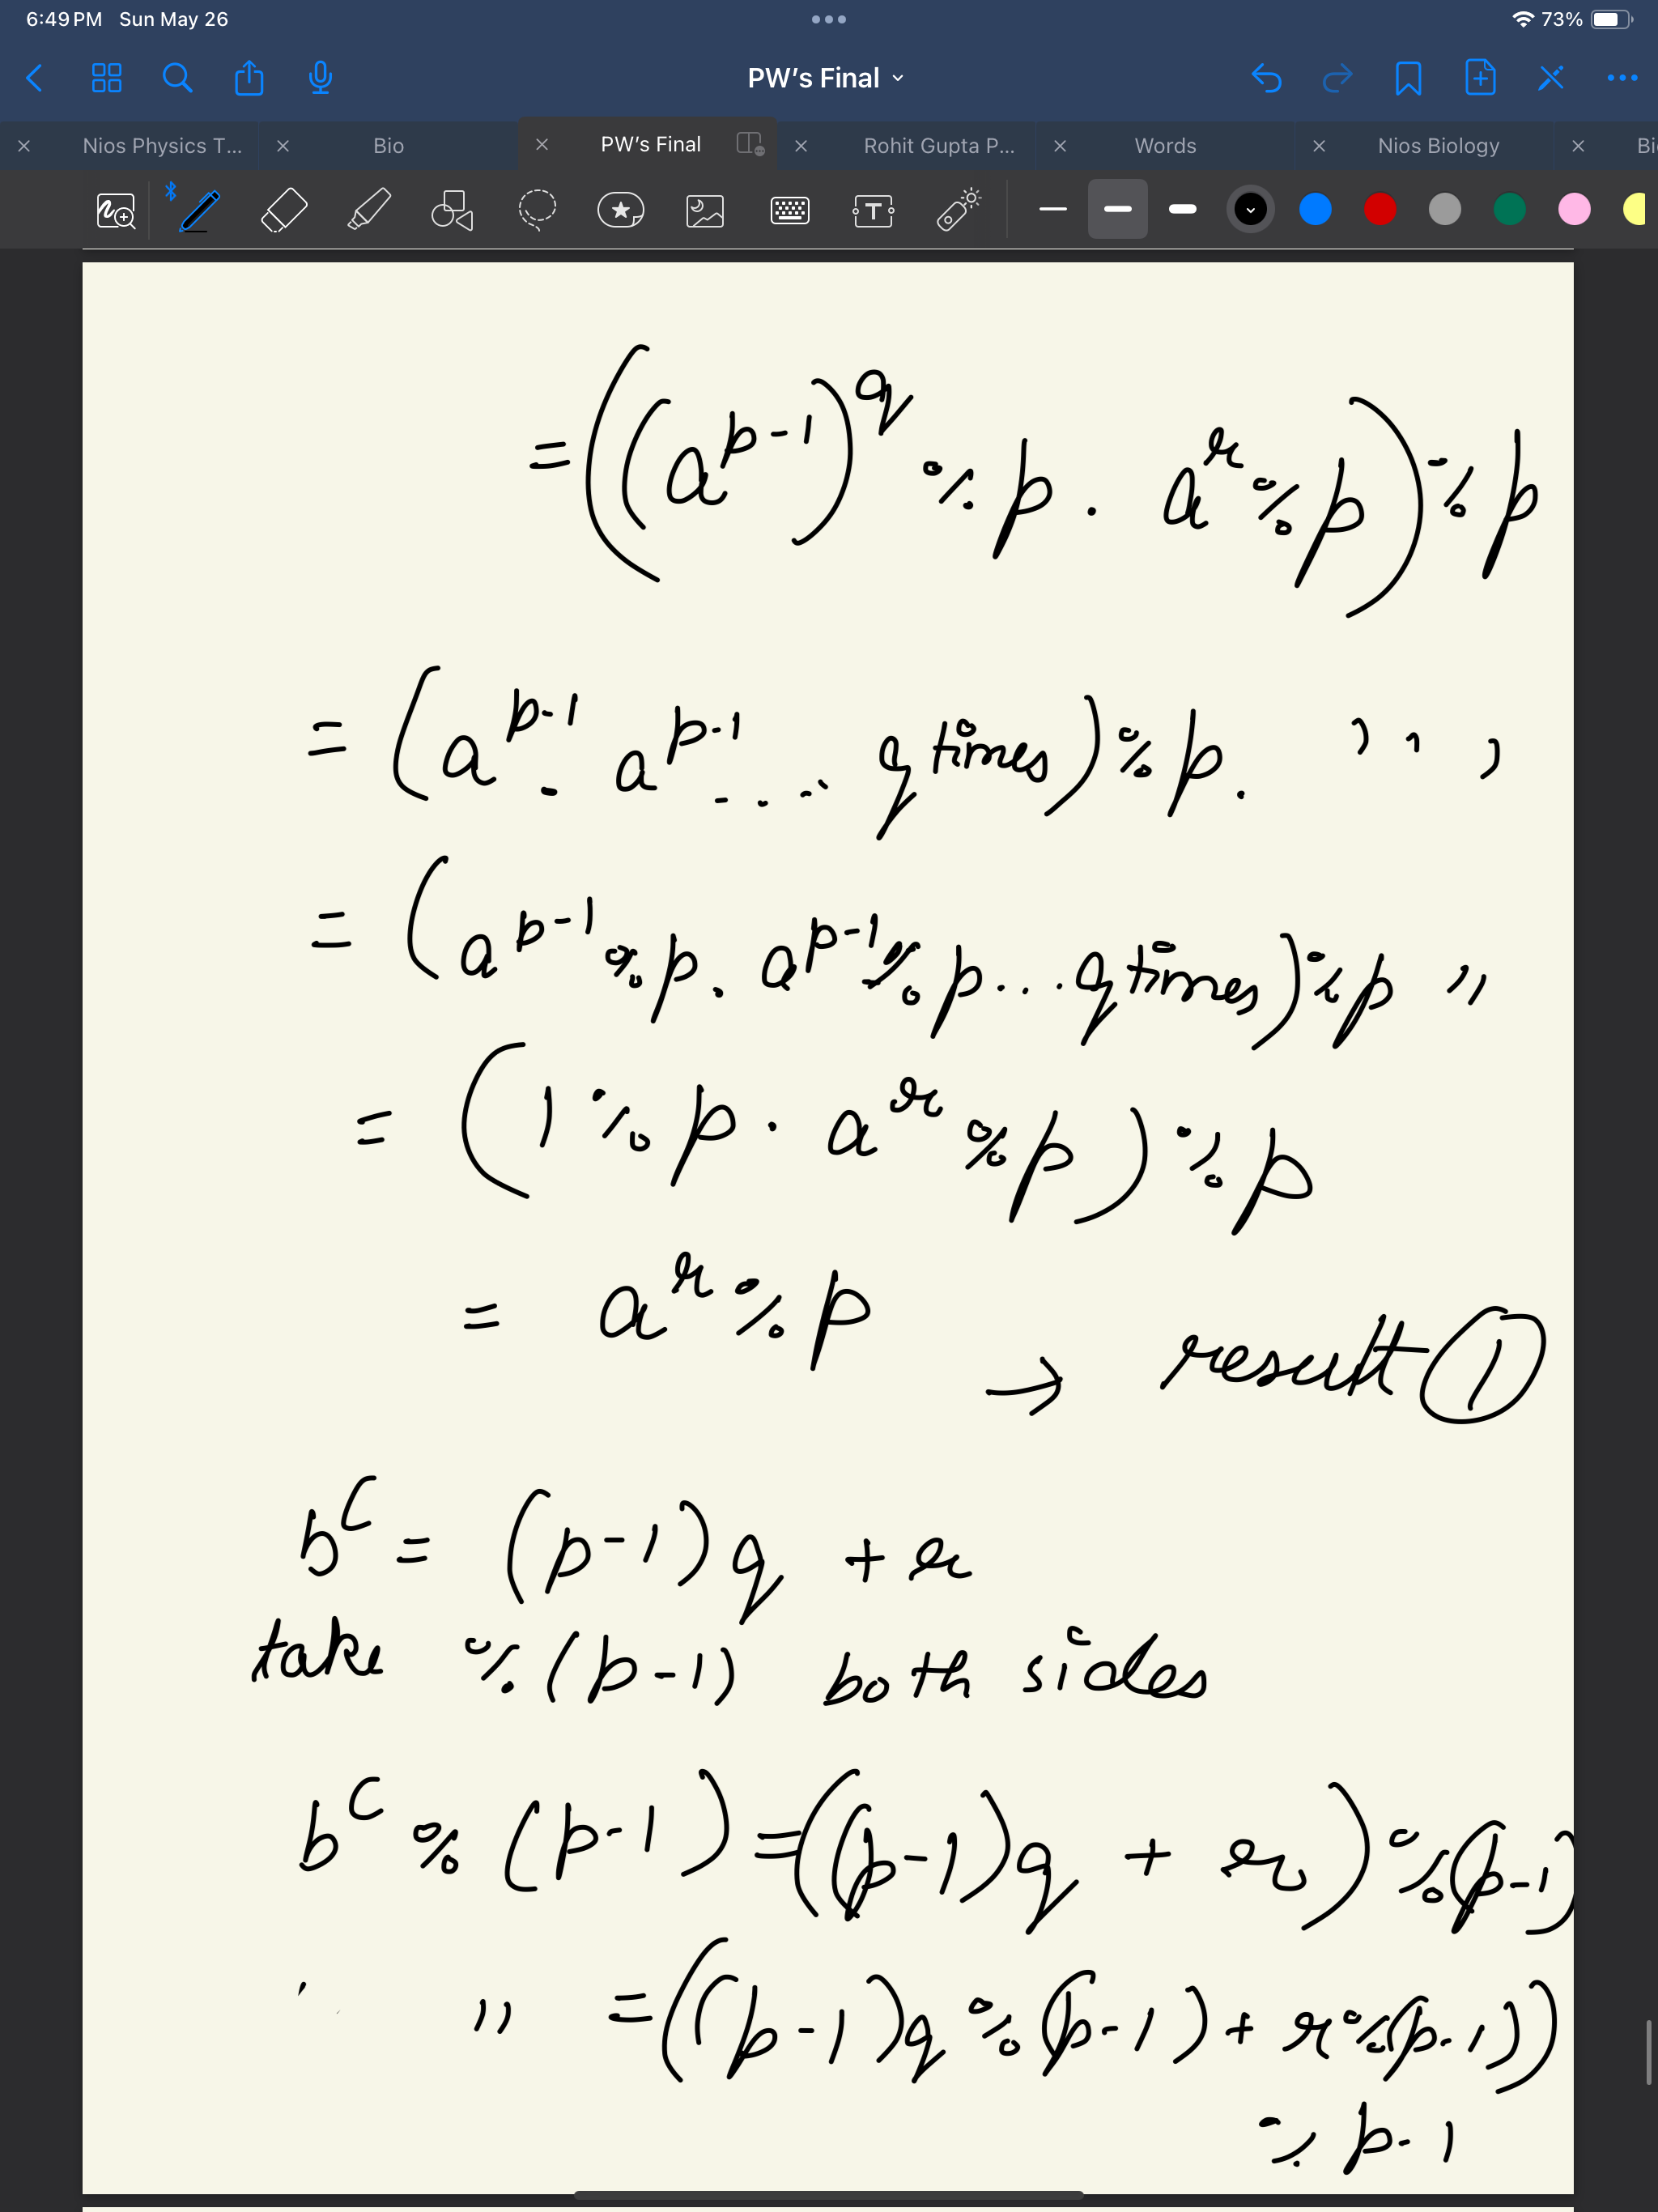 6:49 PM Sun May 26 73%
PW's Final
Nios Physics T... Bio PW's Final Rohit Gupta P... Words Nios Biology Bi
= ((a^(p-1))^q % p . a^r % p) % p
= (a^(p-1) . a^(p-1) . ... q times) % p . " "
= (a^(p-1) % p . a^(p-1) % p ... q times) % p "
= (1 % p . a^r % p) % p
= a^r % p
→ result ①
b^c = (p-1)q + r
take % (p-1) both sides
b^c % (p-1) = ((p-1)q + r) % (p-1)
" = ((p-1)q % (p-1) + r % (p-1))
% p-1